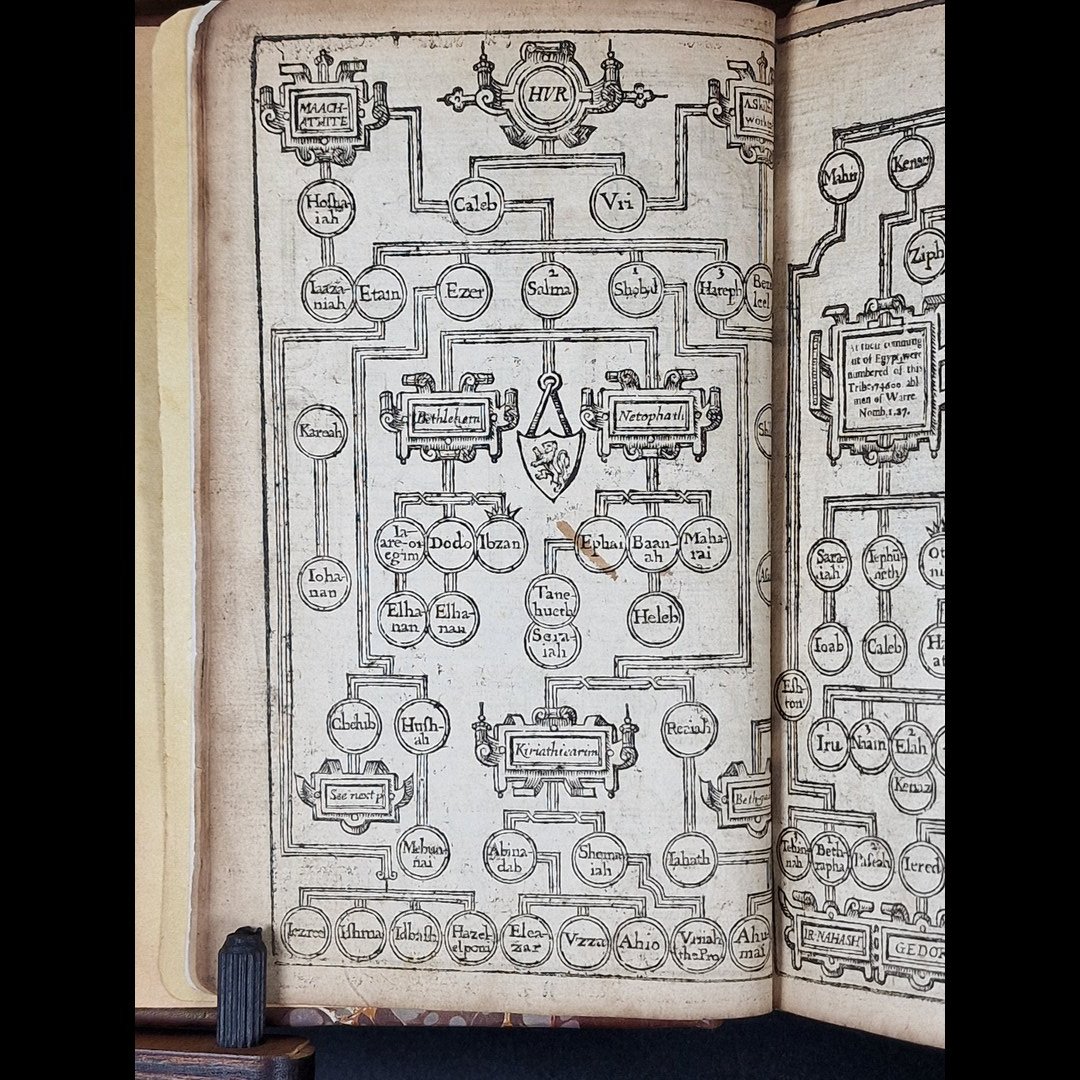 MAACH-
ATHITE
HVR
Hosha-
iah
Caleb
Vri
Iaaza-
niah
Etam
Ezer
2
Salma
1
Shobal
3
Hareph
Bethlehem
Netophath
Kareah
Ia-
are-or-
egim
Dodo
Ibzan
Ephai
Baan-
ah
Maha-
rai
Ioha-
nan
Elha-
nan
Elha-
nan
Tane-
hueth
Sera-
iah
Heleb
Chehib
Hush-
ah
Kiriathiearim
Reaiah
See next p
Mebun-
nai
Abina-
dab
Shema-
iah
Iahath
Iezreel
Ishma
Idbash
Hazel-
elponi
Elea-
zar
Vzza
Ahio
Vriah
the Pro
Ahu-
mai
Mahir
Kenaz
Ziph
At their comming
ut of Egypt were
numbered of this
Tribe 74600. abl
men of Warre.
Nomb. 1. 27.
Sara-
iah
Iephu-
neth
Ioab
Caleb
Esh-
ton
1
Iru
3
Naam
2
Elah
Kenaz
Tehin-
nah
Beth-
rapha
2
Paseah
Iered
IR-NAHASH
GEDOR